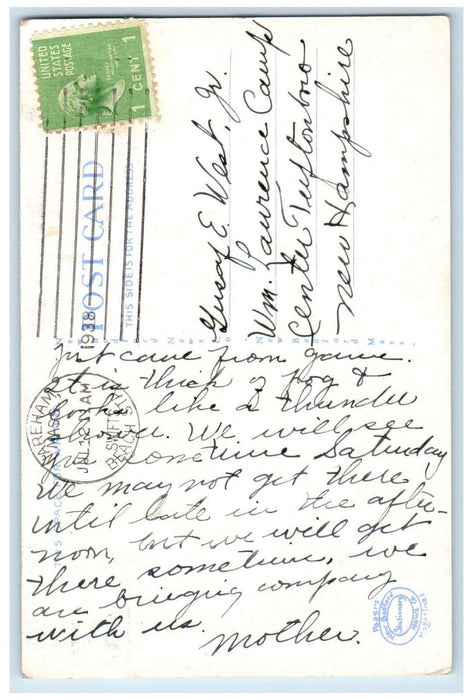 UNITED STATES POSTAGE
1 CENT 1
POST CARD
THIS SIDE IS FOR THE ADDRESS
Gusaf E. West, Jr.
Wm. Lawrence Camp
Center Tuftonboro
New Hampshire
WAREHAM
MASS.
JUL 12
AM
1938
BEACH STA.
Just came from game.
It is thick of fog &
looks like a thunder
shower. We will see
you sometime Saturday
We may not get there
until late in the after-
noon, but we will get
there sometime, we
are bringing company
with us.
Mother.